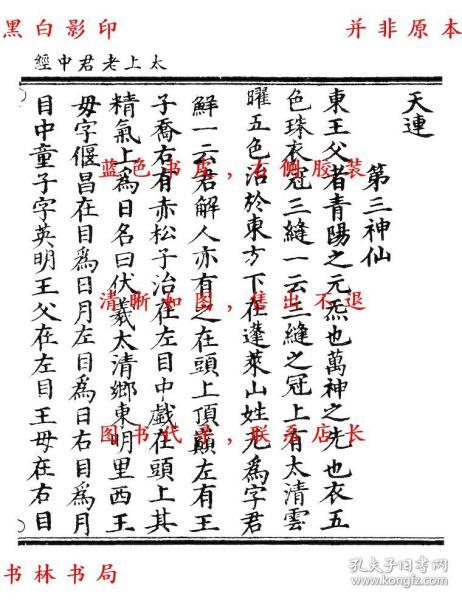 黑白影印
并非原本
太上老君中經
天連
第三神仙
東王父者青陽之元炁也萬神之先也衣五
色珠衣冠三縫一云三縫之冠上有太清雲
曜五色治於東方下在蓬萊山姓无為字君
鮮一云君解人亦有之在頭上頂巔左有王
子喬右有赤松子治在左目中戲在頭上其
精氣上為日名曰伏羲太清鄉東明里西王
母字偃昌在目為日月左目為日右目為月
目中童子字英明王父在左目王母在右目
蓝色书库,右侧胶装
清晰如图,售出不退
图书代录,联系店长
书林书局
孔夫子旧书网